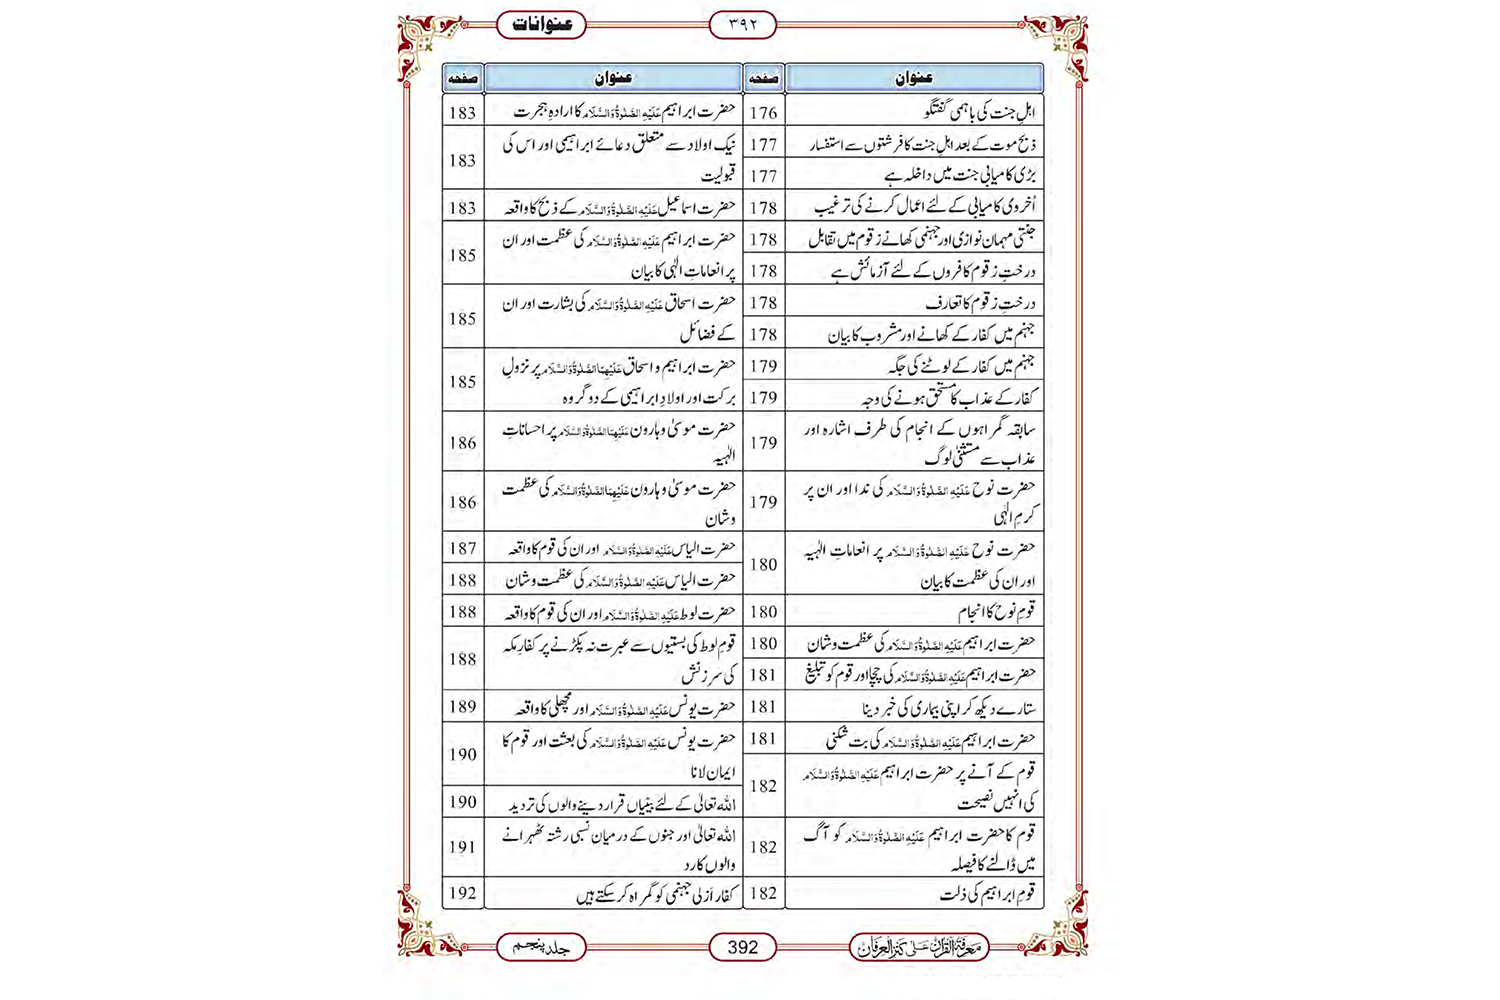 عنوانات
۳۹۲
عنوان صفحہ
اہلِ جنت کی باہمی گفتگو 176
ذبحِ موت کے بعد اہلِ جنت کا فرشتوں سے استفسار 177
بڑی کامیابی جنت میں داخلہ ہے 177
اُخروی کامیابی کے لئے اعمال کرنے کی ترغیب 178
جنتی مہمان نوازی اور جہنمی کھانے زقوم میں تقابل 178
درختِ زقوم کافروں کے لئے آزمائش ہے 178
درختِ زقوم کا تعارف 178
جہنم میں کفار کے کھانے اور مشروب کا بیان 178
جہنم میں کفار کے لوٹنے کی جگہ 179
کفار کے عذاب کا مستحق ہونے کی وجہ 179
سابقہ گمراہوں کے انجام کی طرف اشارہ اور
عذاب سے مستثنیٰ لوگ 179
حضرت نوح عَلَیْہِ الصَّلٰوۃُ وَالسَّلَام کی ندا اور ان پر
کرمِ الٰہی 179
حضرت نوح عَلَیْہِ الصَّلٰوۃُ وَالسَّلَام پر انعاماتِ الٰہیہ
اور ان کی عظمت کا بیان 180
قومِ نوح کا انجام 180
حضرت ابراہیم عَلَیْہِ الصَّلٰوۃُ وَالسَّلَام کی عظمت و شان 180
حضرت ابراہیم عَلَیْہِ الصَّلٰوۃُ وَالسَّلَام کی چچا اور قوم کو تبلیغ 181
ستارے دیکھ کر اپنی بیماری کی خبر دینا 181
حضرت ابراہیم عَلَیْہِ الصَّلٰوۃُ وَالسَّلَام کی بت شکنی 181
قوم کے آنے پر حضرت ابراہیم عَلَیْہِ الصَّلٰوۃُ وَالسَّلَام
کی انہیں نصیحت 182
قوم کا حضرت ابراہیم عَلَیْہِ الصَّلٰوۃُ وَالسَّلَام کو آگ
میں ڈالنے کا فیصلہ 182
قومِ ابراہیم کی ذلت 182
عنوان صفحہ
حضرت ابراہیم عَلَیْہِ الصَّلٰوۃُ وَالسَّلَام کا ارادہِ ہجرت 183
نیک اولاد سے متعلق دعائے ابراہیمی اور اس کی
قبولیت 183
حضرت اسماعیل عَلَیْہِ الصَّلٰوۃُ وَالسَّلَام کے ذبح کا واقعہ 183
حضرت ابراہیم عَلَیْہِ الصَّلٰوۃُ وَالسَّلَام کی عظمت اور ان
پر انعاماتِ الٰہی کا بیان 185
حضرت اسحاق عَلَیْہِ الصَّلٰوۃُ وَالسَّلَام کی بشارت اور ان
کے فضائل 185
حضرت ابراہیم و اسحاق عَلَیْہِمَا الصَّلٰوۃُ وَالسَّلَام پر نزولِ
برکت اور اولادِ ابراہیمی کے دو گروہ 185
حضرت موسیٰ و ہارون عَلَیْہِمَا الصَّلٰوۃُ وَالسَّلَام پر احساناتِ
الٰہیہ 186
حضرت موسیٰ و ہارون عَلَیْہِمَا الصَّلٰوۃُ وَالسَّلَام کی عظمت
و شان 186
حضرت الیاس عَلَیْہِ الصَّلٰوۃُ وَالسَّلَام اور ان کی قوم کا واقعہ 187
حضرت الیاس عَلَیْہِ الصَّلٰوۃُ وَالسَّلَام کی عظمت و شان 188
حضرت لوط عَلَیْہِ الصَّلٰوۃُ وَالسَّلَام اور ان کی قوم کا واقعہ 188
قومِ لوط کی بستیوں سے عبرت نہ پکڑنے پر کفارِ مکہ
کی سرزنش 188
حضرت یونس عَلَیْہِ الصَّلٰوۃُ وَالسَّلَام اور مچھلی کا واقعہ 189
حضرت یونس عَلَیْہِ الصَّلٰوۃُ وَالسَّلَام کی بعثت اور قوم کا
ایمان لانا 190
اللہ تعالیٰ کے لئے بیٹیاں قرار دینے والوں کی تردید 190
اللہ تعالیٰ اور جنوں کے درمیان نسبی رشتہ ٹھہرانے
والوں کا رد 191
کفار اَزلی جہنمی کو گمراہ کر سکتے ہیں 192
معرفۃ القرآن علیٰ کنز العرفان
392
جلد پنجم